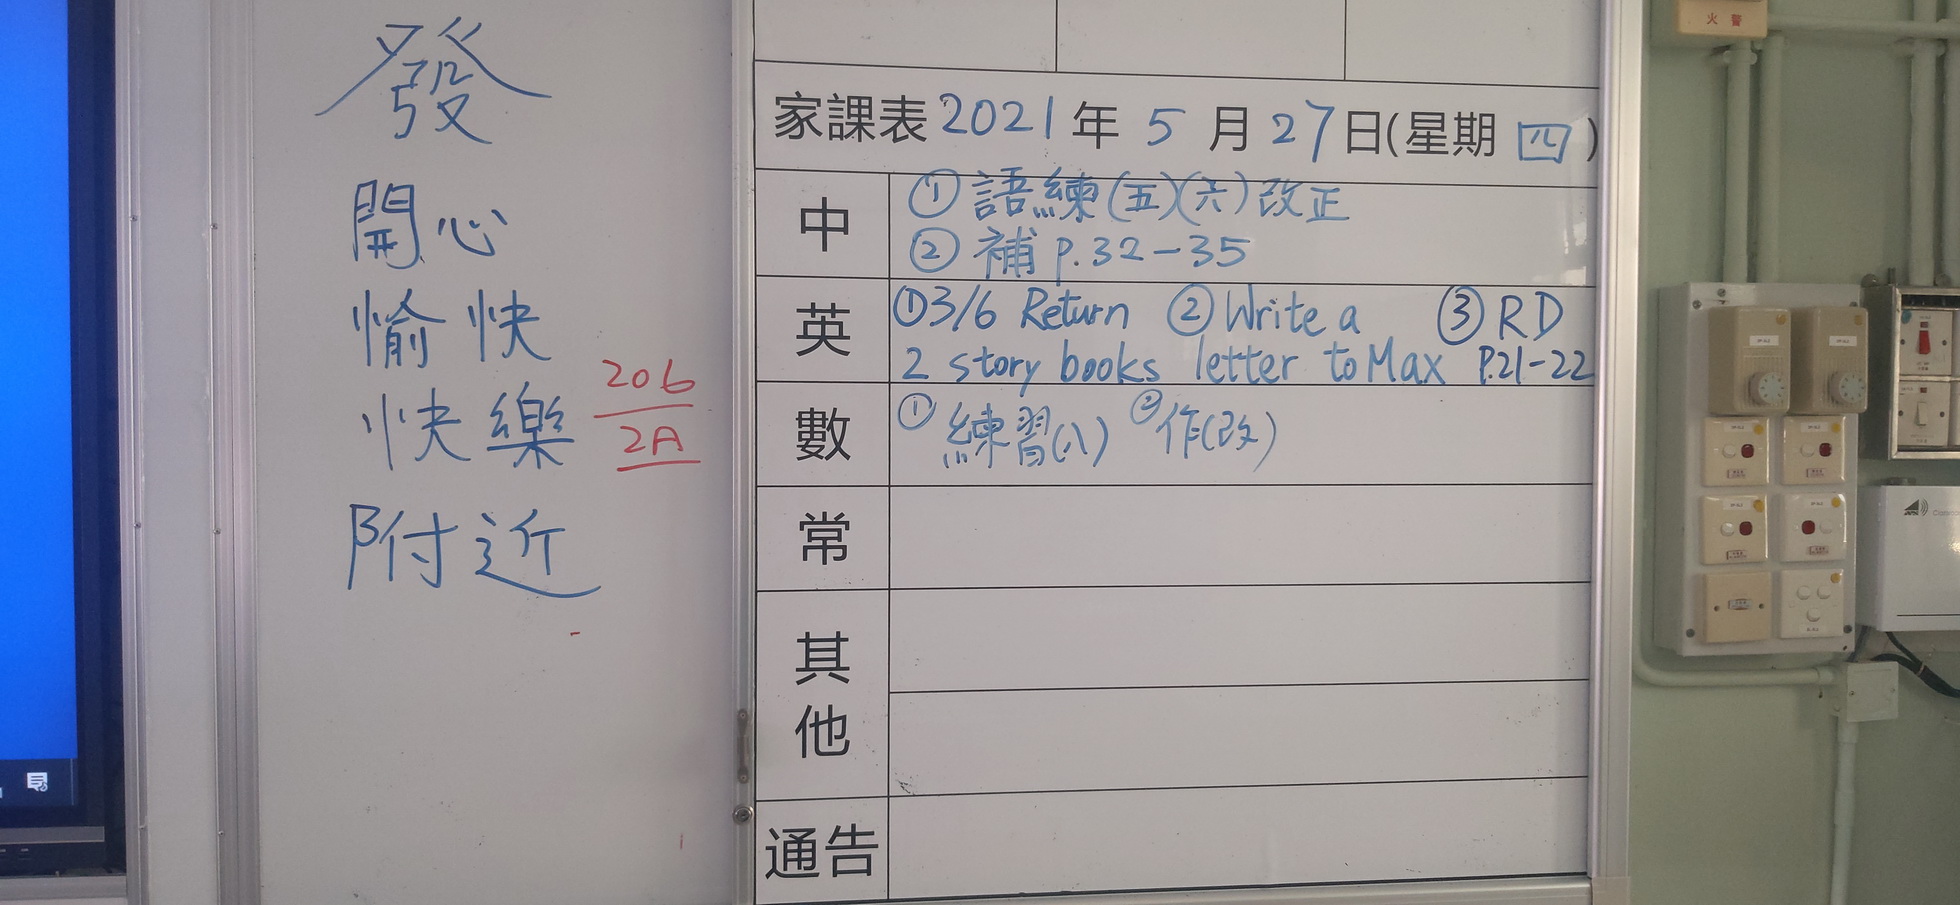 發
開心
愉快
快樂
206
2A
附近
家課表2021年5月27日(星期四)
中
①語練(五)(六)改正
②補P.32-35
英
①3/6 Return ②Write a ③RD
2 story books letter to Max P.21-22
數
①練習(八) ②作(改)
常
其他
通告
火警